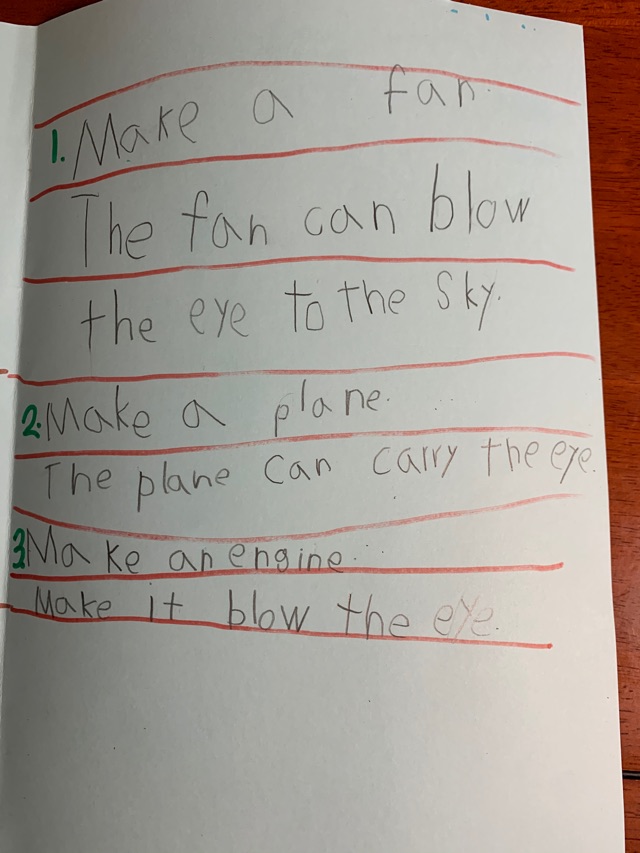 1. Make a fan.
The fan can blow
the eye to the sky.
2. Make a plane.
The plane can carry the eye.
3. Make an engine.
Make it blow the eye.